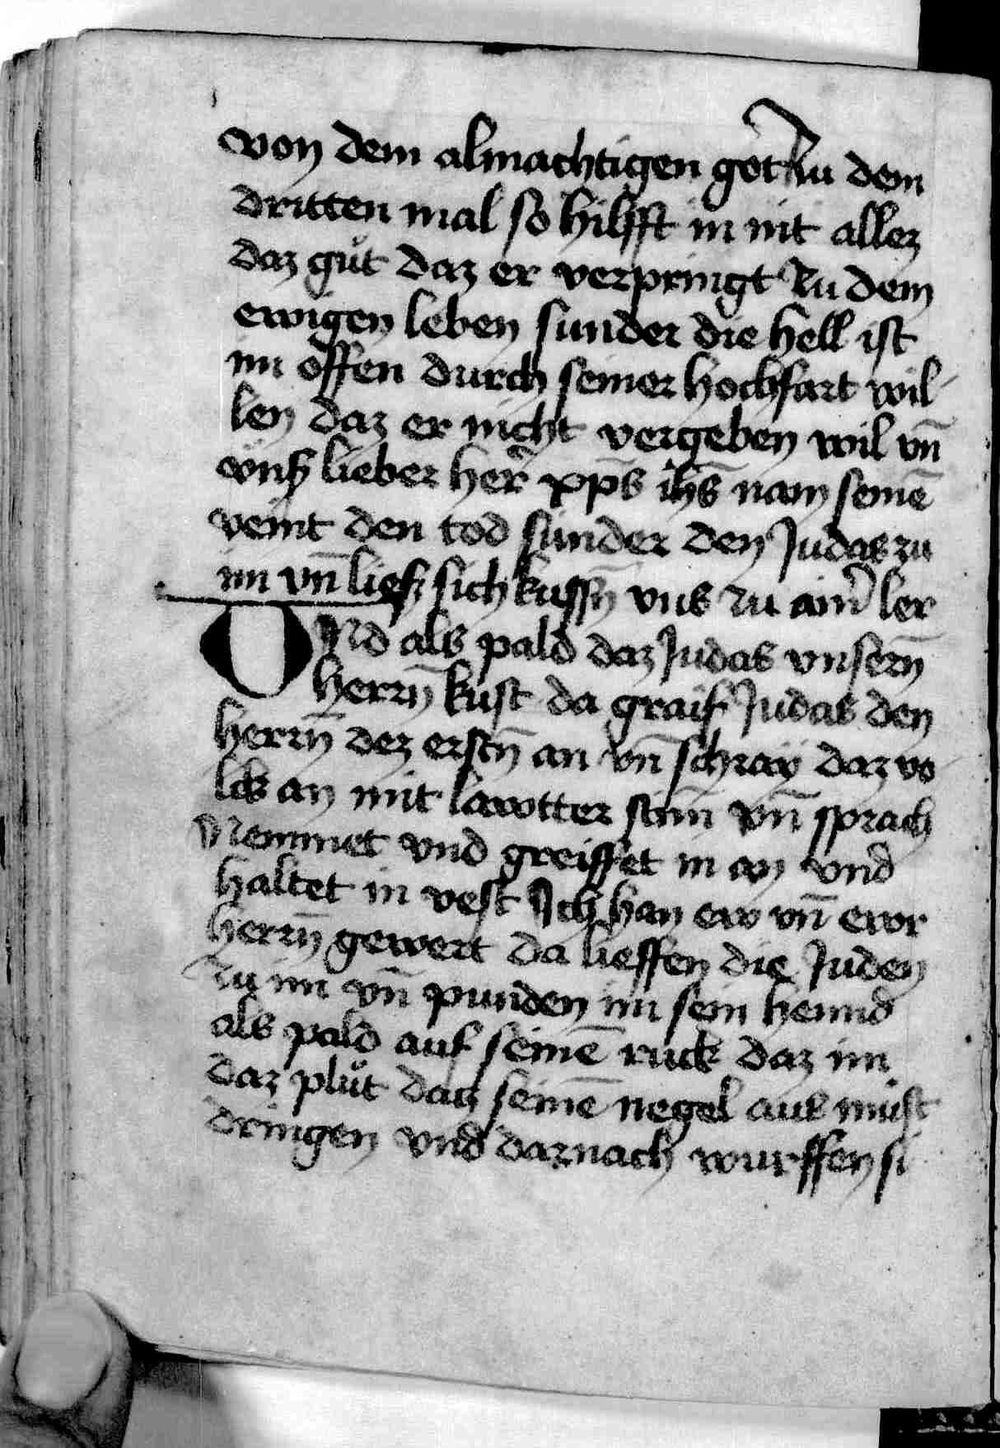 von dem almachtigen got Zu dem
dritten mal so hilfft in nit allez
daz gůt daz er verpringt zu dem
ewigen leben sunder die hell ist
im offen durch seiner hochfart wil
len daz er nicht vergeben wil vn̄
vnß lieber her xp̄s ih̄s nam seinē
veint den tod sunder den Judas zu
im vn̄ ließ sich kussn̄ vns zu ainer ler
Vnd als pald daz Judas vnsern̄
herrn̄ kust da graif Judas den
herrn̄ dez erstn̄ an vn̄ schray daz vo
lck an mit lawtter stim̄ vn̄ sprach
Nemmet vnd greiffet in an vnd
haltet in vest Ich han ew vn̄ ewr
herrn̄ gewert da lieffen die Juden
zu im vn̄ punden im sein hennd
als pald auf seinē ruck daz im
daz plůt daz seinē negel aus must
dringen vnd darnach wurffen si